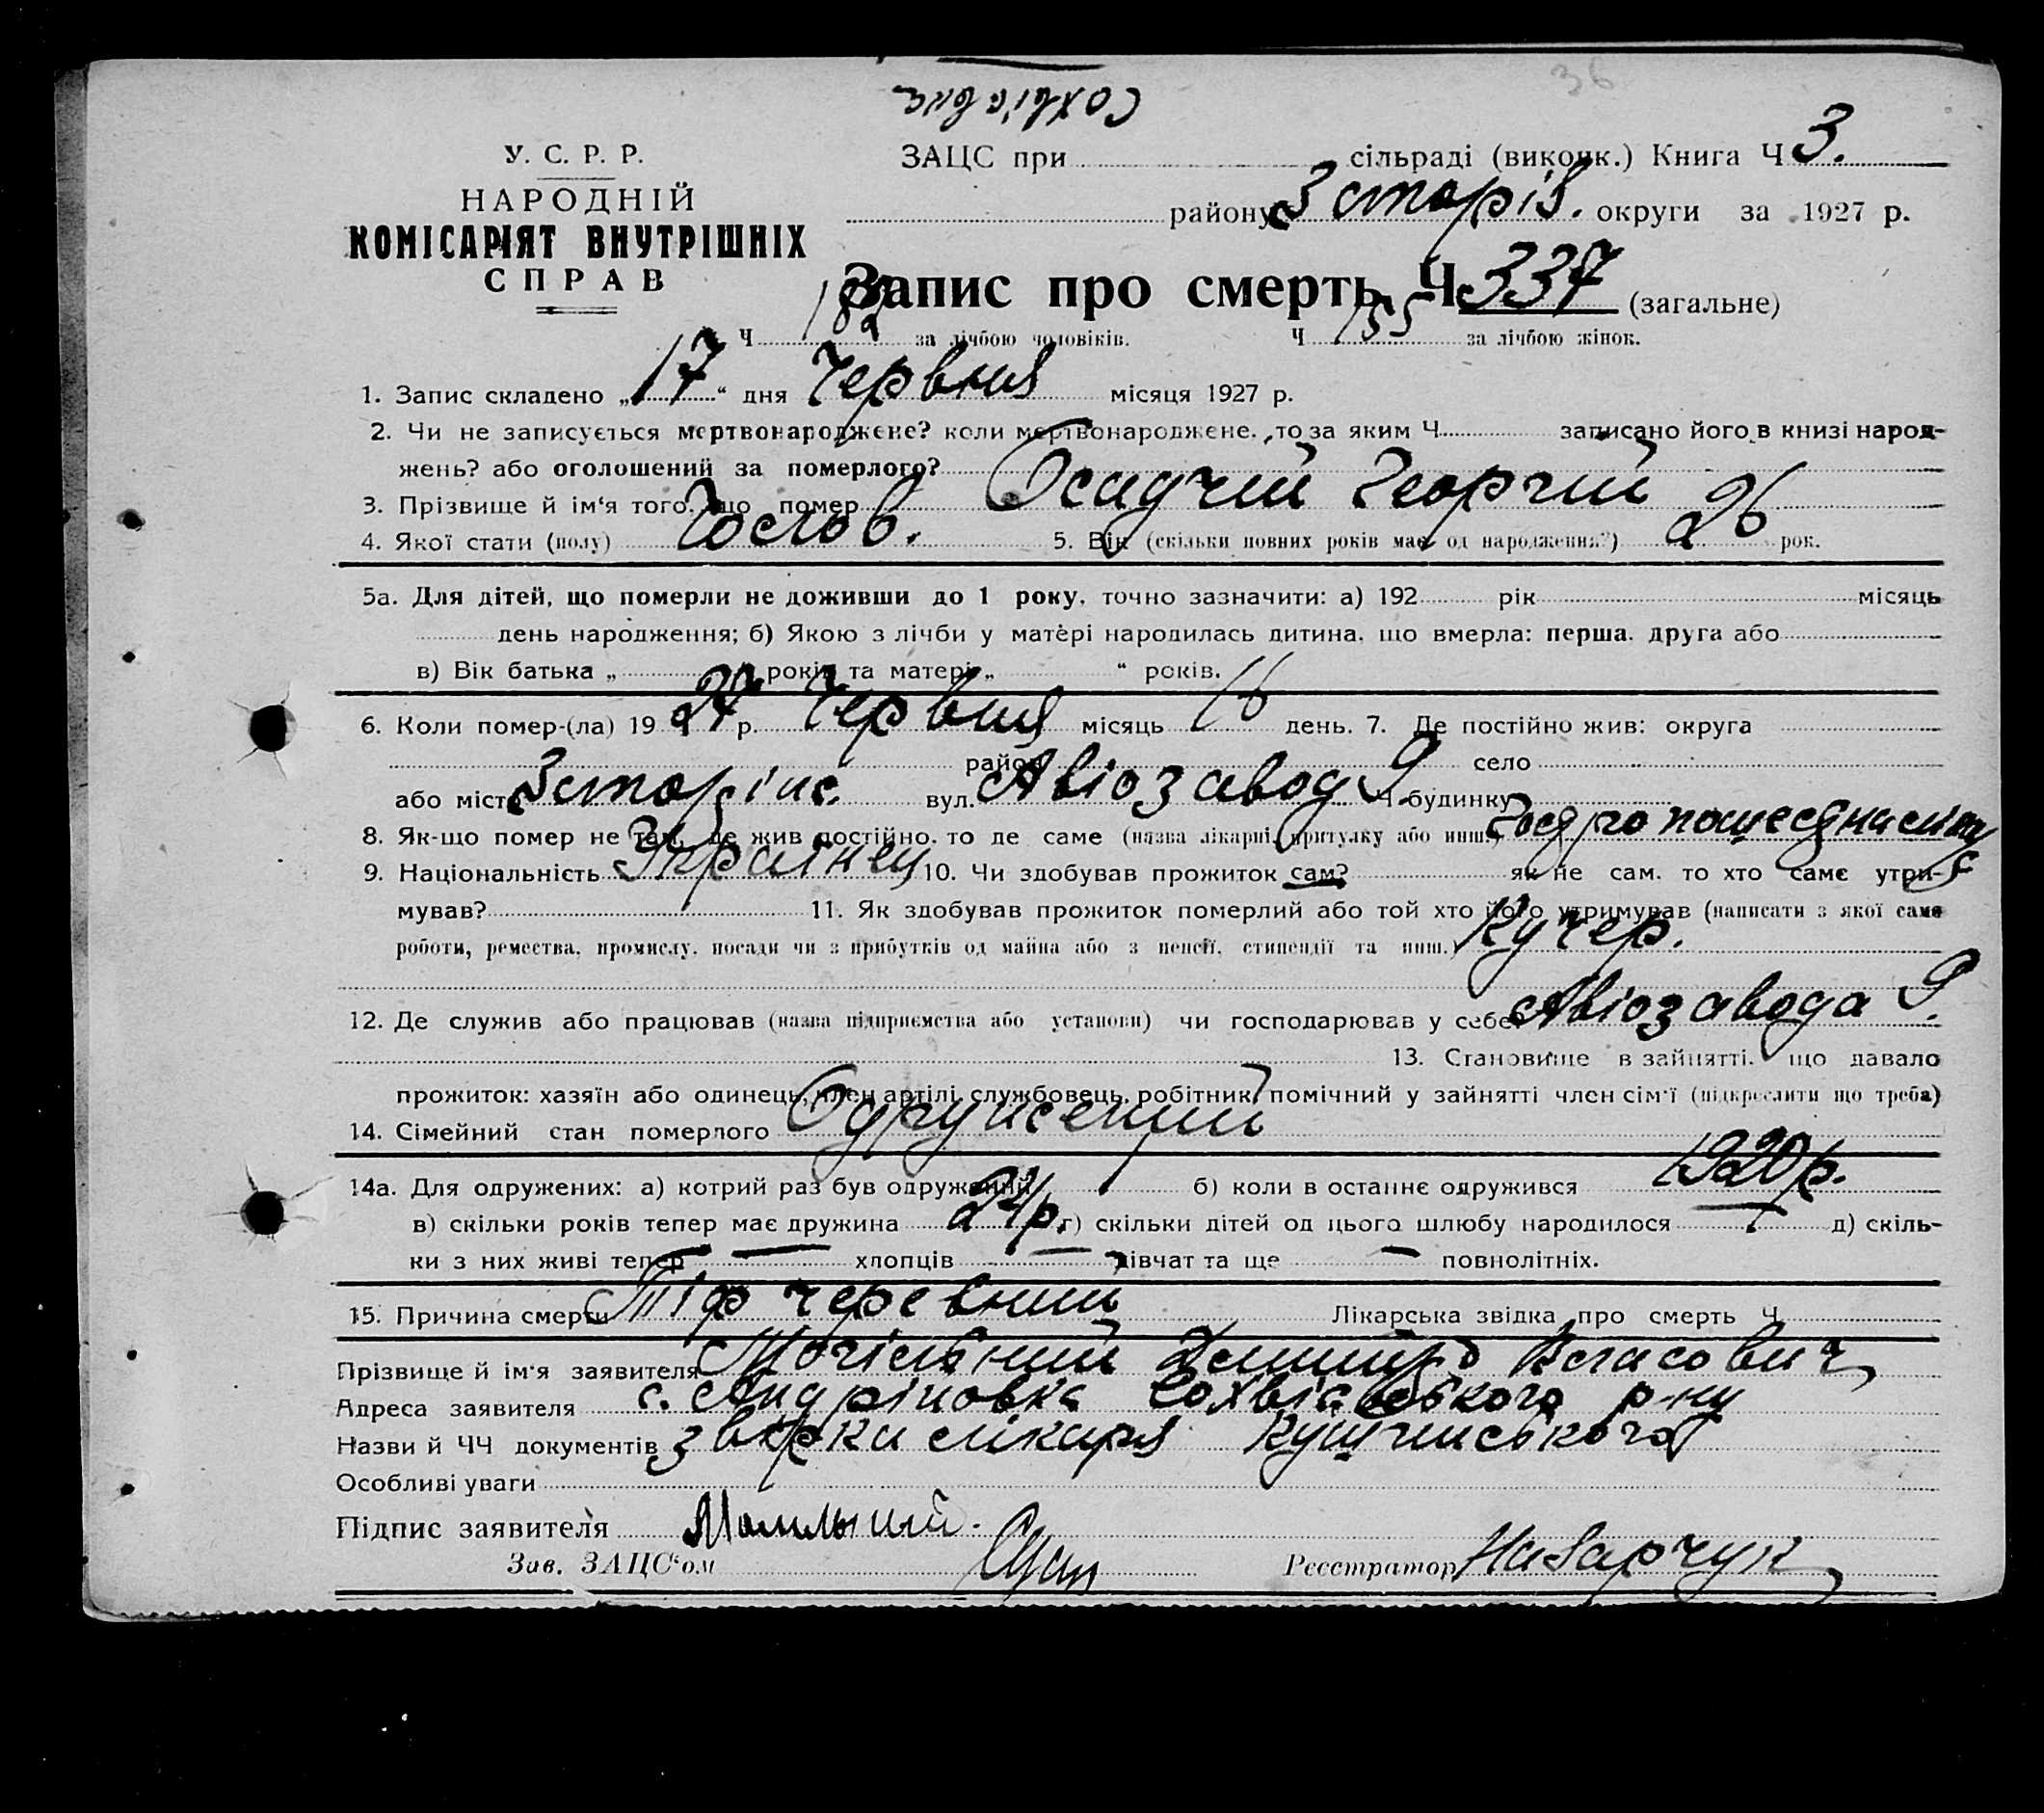 36
У. С. Р. Р.
НАРОДНІЙ
КОМІСАРІЯТ ВНУТРІШНІХ
СПРАВ
ЗАЦС при сільраді (виконк.) Книга Ч 3.
району Запоріз. округи за 1927 р.
Запис про смерть Ч. 337 (загальне)
Ч 182 за лічбою чоловіків. Ч 155 за лічбою жінок.
1. Запис складено „17“ дня Червня місяця 1927 р.
2. Чи не записується мертвонароджене? коли мертвонароджене, то за яким Ч. записано його в книзі народ-
жень? або оголошений за померлого?
3. Прізвище й ім‘я того, що помер Осадчий Георгий
4. Якої стати (полу) Чолов. 5. Вік (скільки повних років має од народження?) 26 рок.
5а. Для дітей, що померли не доживши до 1 року, точно зазначити: а) 192 рік місяць
день народження; б) Якою з лічби у матері народилась дитина, що вмерла: перша, друга або
в) Вік батька „ років та матері „ “ років.
6. Коли помер-(ла) 1927 р. Червня місяць 16 день. 7. Де постійно жив: округа
район село
або місто Запоріжс. вул. Авіозавод 9 Ч будинку
8. Як-що помер не там, де жив постійно, то де саме (назва лікарні, притулку або инш.)
9. Національність Украінец 10. Чи здобував прожиток сам? як не сам, то хто саме утри-
мував? 11. Як здобував прожиток померлий або той хто його утримував (написати з якої саме
роботи, ремества, промислу, посади чи з прибутків од майна або з пенсії, стипендії та инш.) Кучер.
12. Де служив або працював (назва підприємства або установи) чи господарював у себе Авіозавода 9.
13. Становище в зайнятті, що давало
прожиток: хазяїн або одинець, член артілі, службовець, робітник, помічний у зайнятті член сім‘ї (підкреслити що треба)
14. Сімейний стан померлого Одружений
14а. Для одружених: а) котрий раз був одружений 1 б) коли в останнє одружився 1920 р.
в) скільки років тепер має дружина 24 р. г) скільки дітей од цього шлюбу народилося — д) скіль-
ки з них живі тепер — хлопців — дівчат та ще — повнолітніх.
15. Причина смерти Тіф черевний Лікарська звідка про смерть Ч
Прізвище й ім‘я заявителя Могільний Власович
Адреса заявителя с. Андріповка р-ну
Назви й ЧЧ документів лікаря Кущинського
Особливі уваги
Підпис заявителя Могильний.
Зав. ЗАЦС‘ом Реєстратор Назарчук